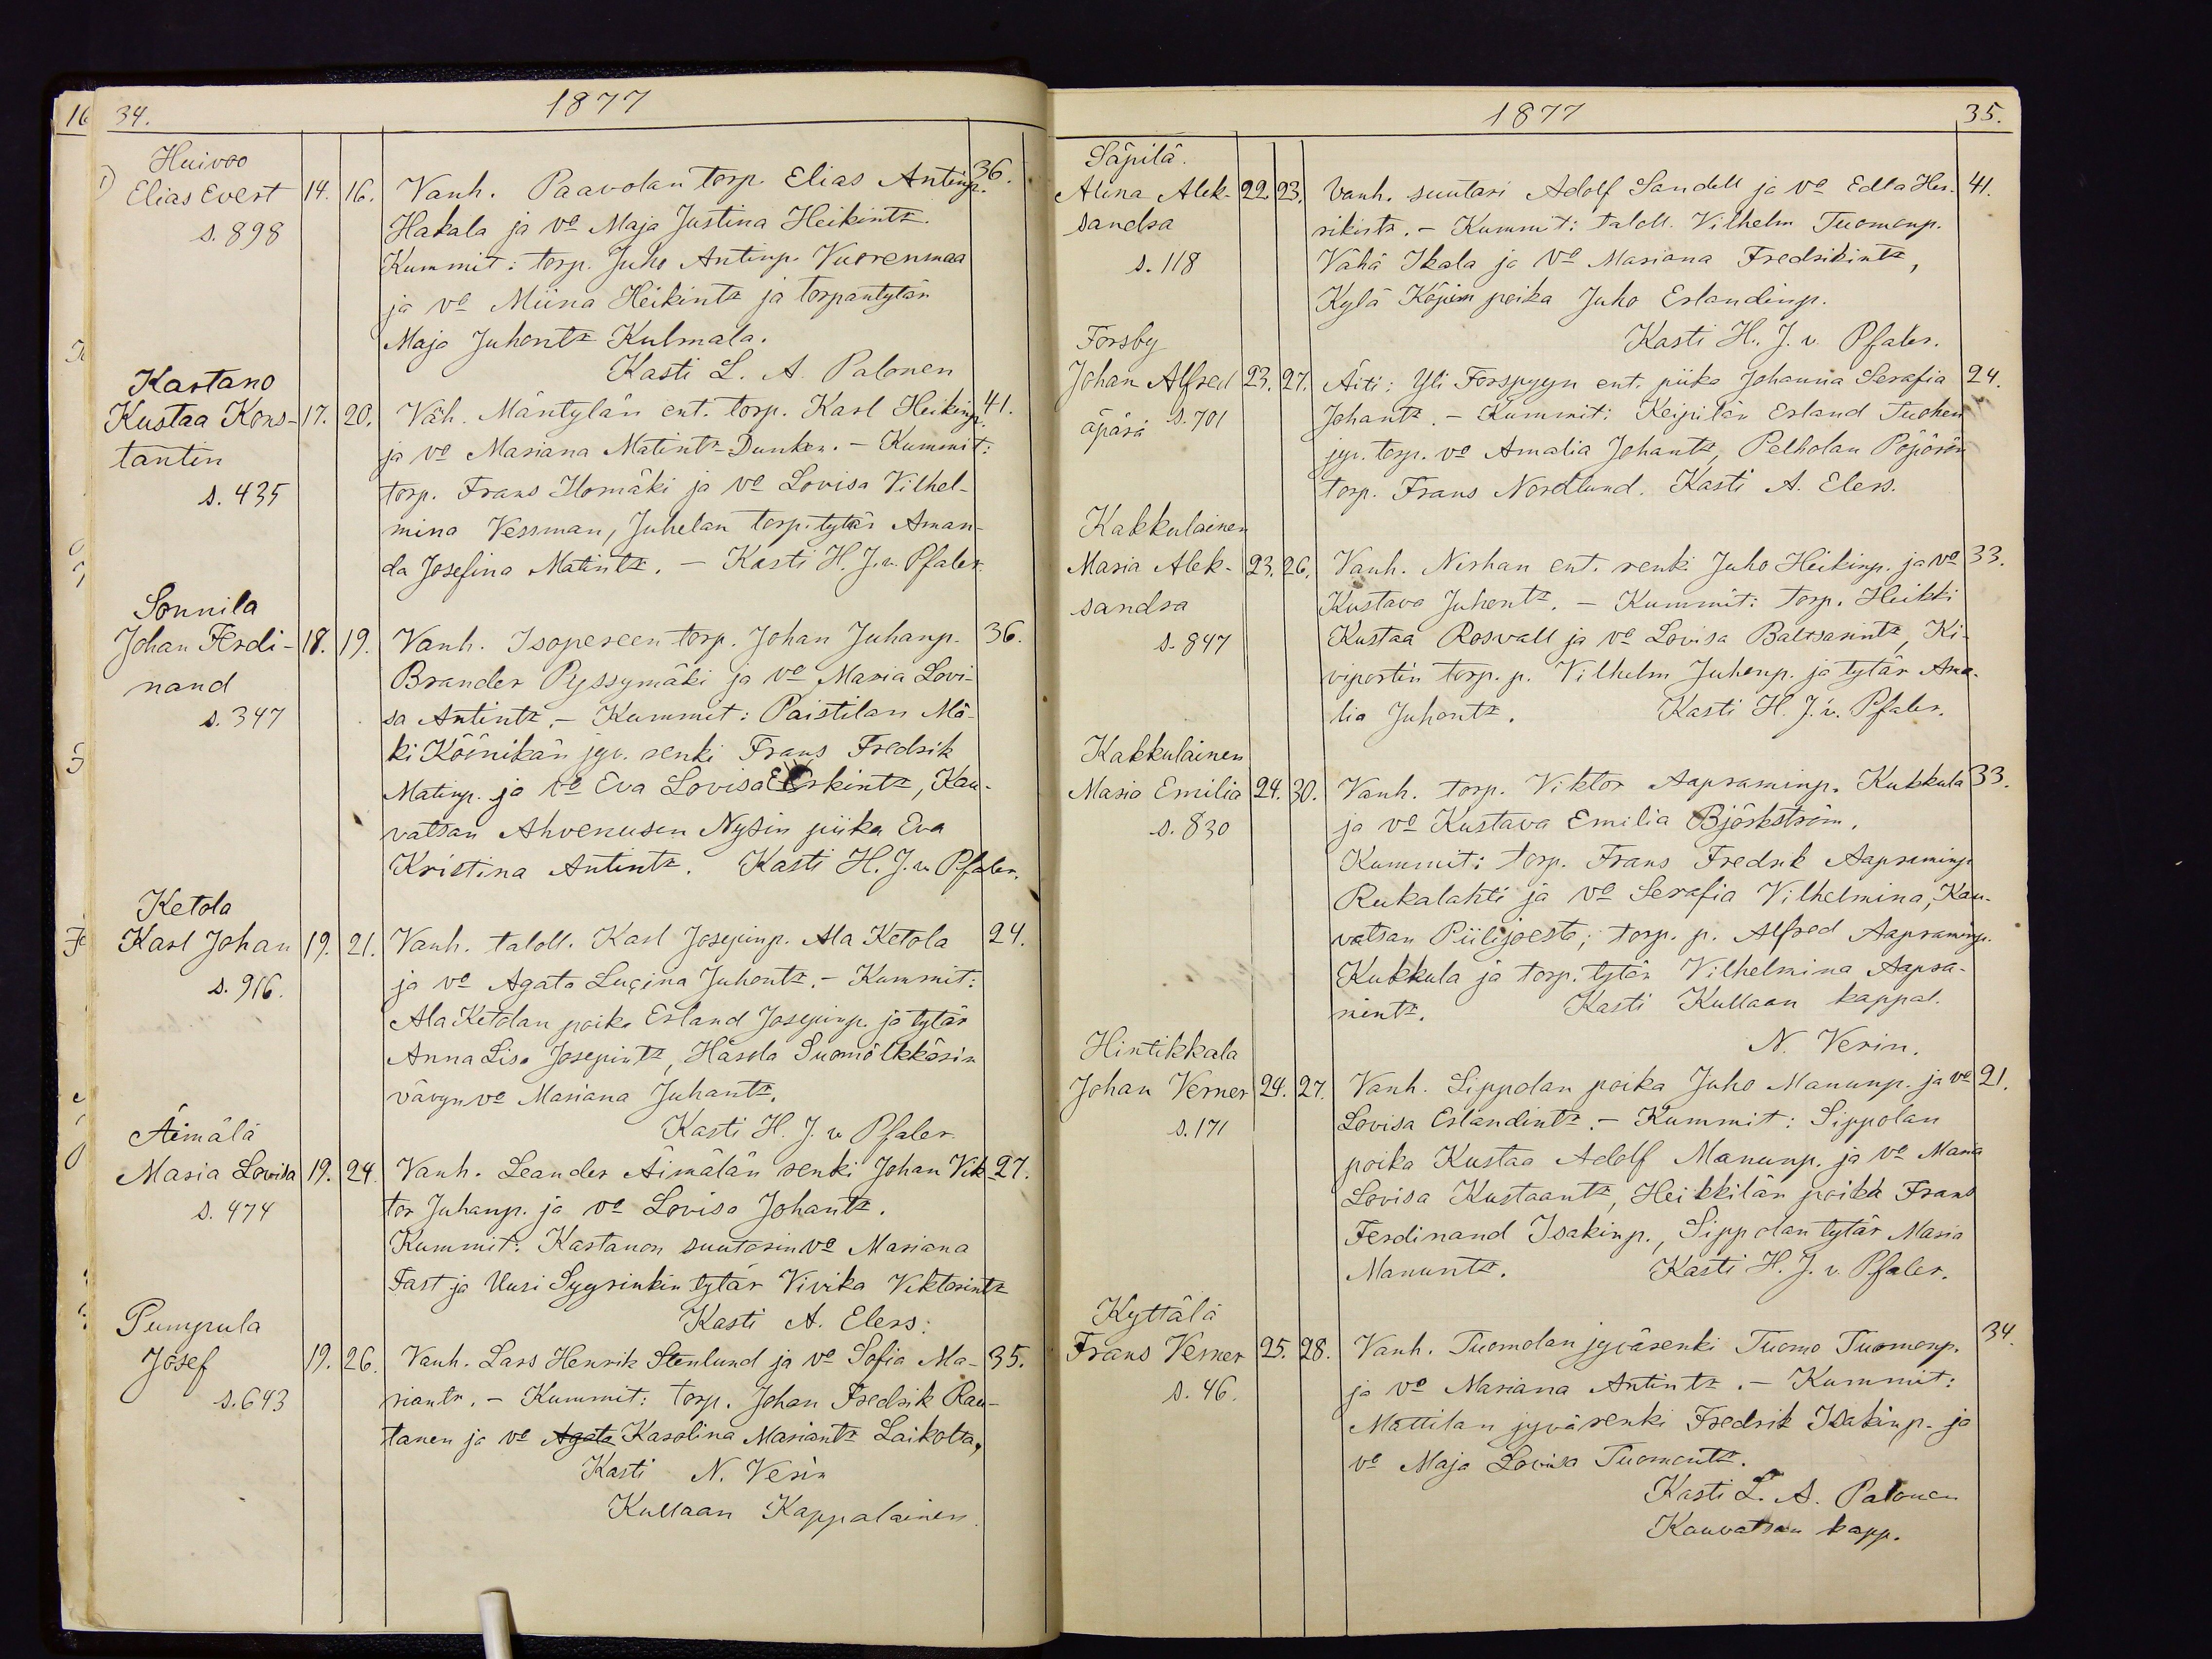 34.
1877
Huivoo
Elias Evert 14. 16. Vanh. Paavolan torp. Elias Antinp. 36.
s. 898 Hakala ja vo Maja Justina Heikintr.
Kummit: torp. Juho Antinp. Vuorenmaa
ja vo Miina Heikintr ja torpantytär
Maja Juhontr Kulmala.
Kasti L. A. Palonen
Kastano
Kustaa Kons- 17. 20. Väh. Mäntylän ent. torp. Karl Heikinp. 41.
tantin ja vo Mariana Matintr Dunker. - Kummit:
s. 435 torp. Frans Ilomäki ja vo Lovisa Vilhel-
mina Vessman, Juhelan torp. tytär Aman-
da Josefina Matintr. - Kasti H. J. v. Pfaler.
Sonnila
Johan Ferdi- 18. 19. Vanh. Isopereen torp. Johan Juhanp. 36.
nand Brander Pyssymäki ja vo Maria Lovi-
s. 347 sa Antintr. - Kummit: Paistilan Mä-
ki Köönikän jyv. renki Frans Fredrik
Matinp. ja vo Eva Lovisa Erkintr, Kau-
vatsan Ahvenusen Nysin piika Eva
Kristina Antintr. Kasti H. J. v. Pfaler.
Ketola
Karl Johan 19. 21. Vanh. taloll. Karl Josepinp. Ala Ketola 24.
s. 916. ja vo Agata Lucina Juhontr. - Kummit:
Ala Ketolan poika Erland Josepinp. ja tytär
Anna Lisa Josepintr, Härola Suomölkkärin
vävyn vo Mariana Juhantr.
Kasti H. J. v. Pfaler.
Äimälä
Maria Lovisa 19. 24. Vanh. Leander Äimälän renki Johan Vik- 27.
s. 474 tor Juhanp. ja vo Lovisa Johantr.
Kummit: Kastanon suutarin vo Mariana
Fast ja Uusi Syyrinkin tytär Vivika Viktorintr
Kasti A. Elers.
Pumpula
Josef 19. 26. Vanh. Lars Henrik Stenlund ja vo Sofia Ma- 35.
s. 643 riantr. - Kummit: torp. Johan Fredrik Rau-
tanen ja vo Agata Karolina Mariantr Laikolta,
Kasti N. Verin
Kullaan Kappalainen.
1877
35.
Säpilä.
Alina Alek- 22. 23. Vanh. suutari Adolf Sandell ja vo Edla Hen- 41.
sandra rikintr. - Kummit: taloll. Vilhelm Tuomonp.
s. 118 Vähä Ikala ja vo Mariana Fredrikintr,
Kylä Käpin poika Juho Erlandinp.
Kasti H. J. v. Pfaler.
Forsby
Johan Alfred 23. 27. Äiti: Yli Forspyyn ent. piika Johanna Serafia 24.
äpärä s. 701 Johantr. - Kummit: Keipilän Erland Tuohen
jyv. torp. vo Amalia Johantr, Pelholan Pöjörön
torp. Frans Nordlund. Kasti A. Elers.
Kakkulainen
Maria Alek- 23. 26. Vanh. Nirhan ent. renki Juho Heikinp. ja vo 33.
sandra Kustava Juhontr. - Kummit: torp. Heikki
s. 847 Kustaa Rosvall ja vo Lovisa Baltsarintr, Ki-
viportin torp. p. Vilhelm Juhonp. ja tytär Ama-
lia Juhontr. Kasti H. J. v. Pfaler.
Kakkulainen
Maria Emilia 24. 30. Vanh. torp. Viktor Aapraminp. Kukkula 33.
s. 830 ja vo Kustava Emilia Björkström.
Kummit: torp. Frans Fredrik Aapraminp
Rukalahti ja vo Serafia Vilhelmina, Kau-
vatsan Piilijoesta; torp. p. Alfred Aapraminp.
Kukkula ja torp. tytär Vilhelmina Aapra-
mintr. Kasti Kullaan kappal.
N. Verin.
Hintikkala
Johan Verner 24. 27. Vanh. Sippolan poika Juho Manunp. ja vo 21.
s. 171 Lovisa Erlandintr. - Kummit: Sippolan
poika Kustaa Adolf Manunp. ja vo Maria
Lovisa Kustaantr, Heikkilän poika Frans
Ferdinand Isakinp., Sippolan tytär Maria
Manuntr. Kasti H. J. v. Pfaler.
Kyttälä
Frans Verner 25. 28. Vanh. Tuomolan jyvärenki Tuomo Tuomonp. 34.
s. 46. ja vo Mariana Antintr. - Kummit:
Mattilan jyvärenki Fredrik Isakinp. ja
vo Maja Lovisa Tuomontr.
Kasti L. A. Palonen
Kauvatsan kapp.